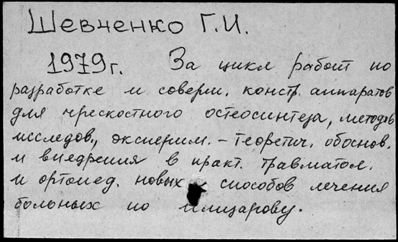 Шевченко Г.И.
1979г. За цикл работ по
разработке и соверш. констр. аппаратов
для чрескостного остеосинтеза, методов
исследов., эксперим. - теоретич. обоснов.
и внедрения в практ. травматол.
и ортопед. новых способов лечения
больных по Илизарову.